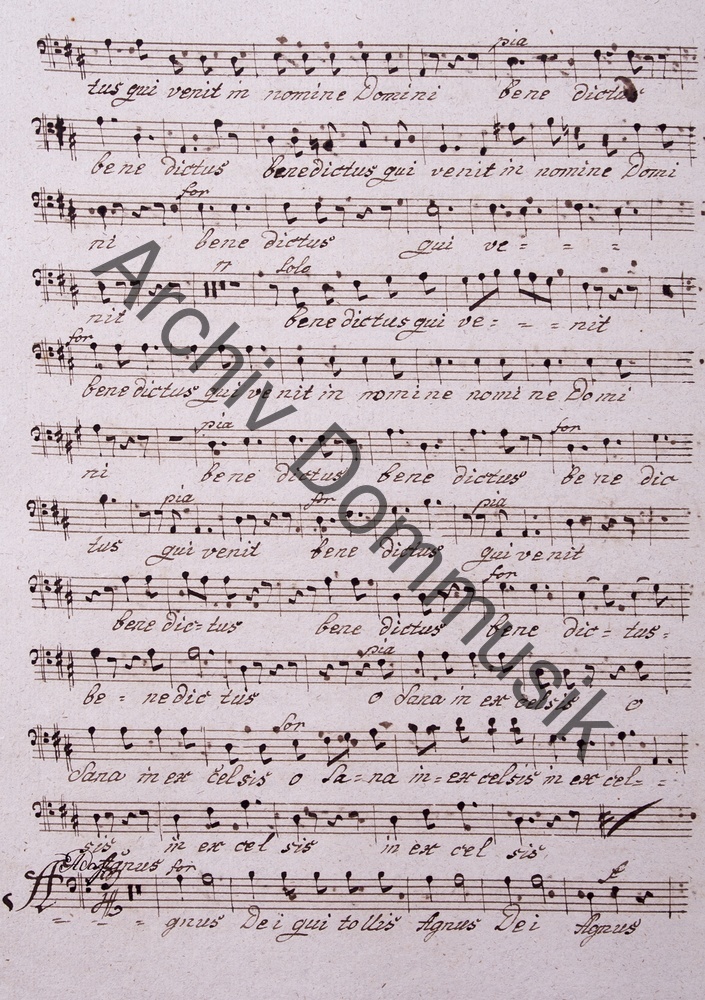 pia
tus qui venit in nomine Domini bene dictus
bene dictus benedictus qui venit in nomine Domi
for
ni bene dictus qui ve = = =
Solo
nit benedictus qui ve = = = nit
for
benedictus qui venit in nomine nomine Domi
pia for
ni bene dictus bene dictus bene dic
pia for pia
tus qui venit bene dictus qui venit
for
bene dic=tus bene dictus bene dic=tus=
pia
be = nedic tus o Sana in ex celsis o
for
Sana in ex celsis o Sa=na in=ex celsis in ex cel= =
sis in ex cel sis in ex cel sis
Agnus for
= = = gnus Dei qui tollis Agnus Dei Agnus
Archiv Dommusik